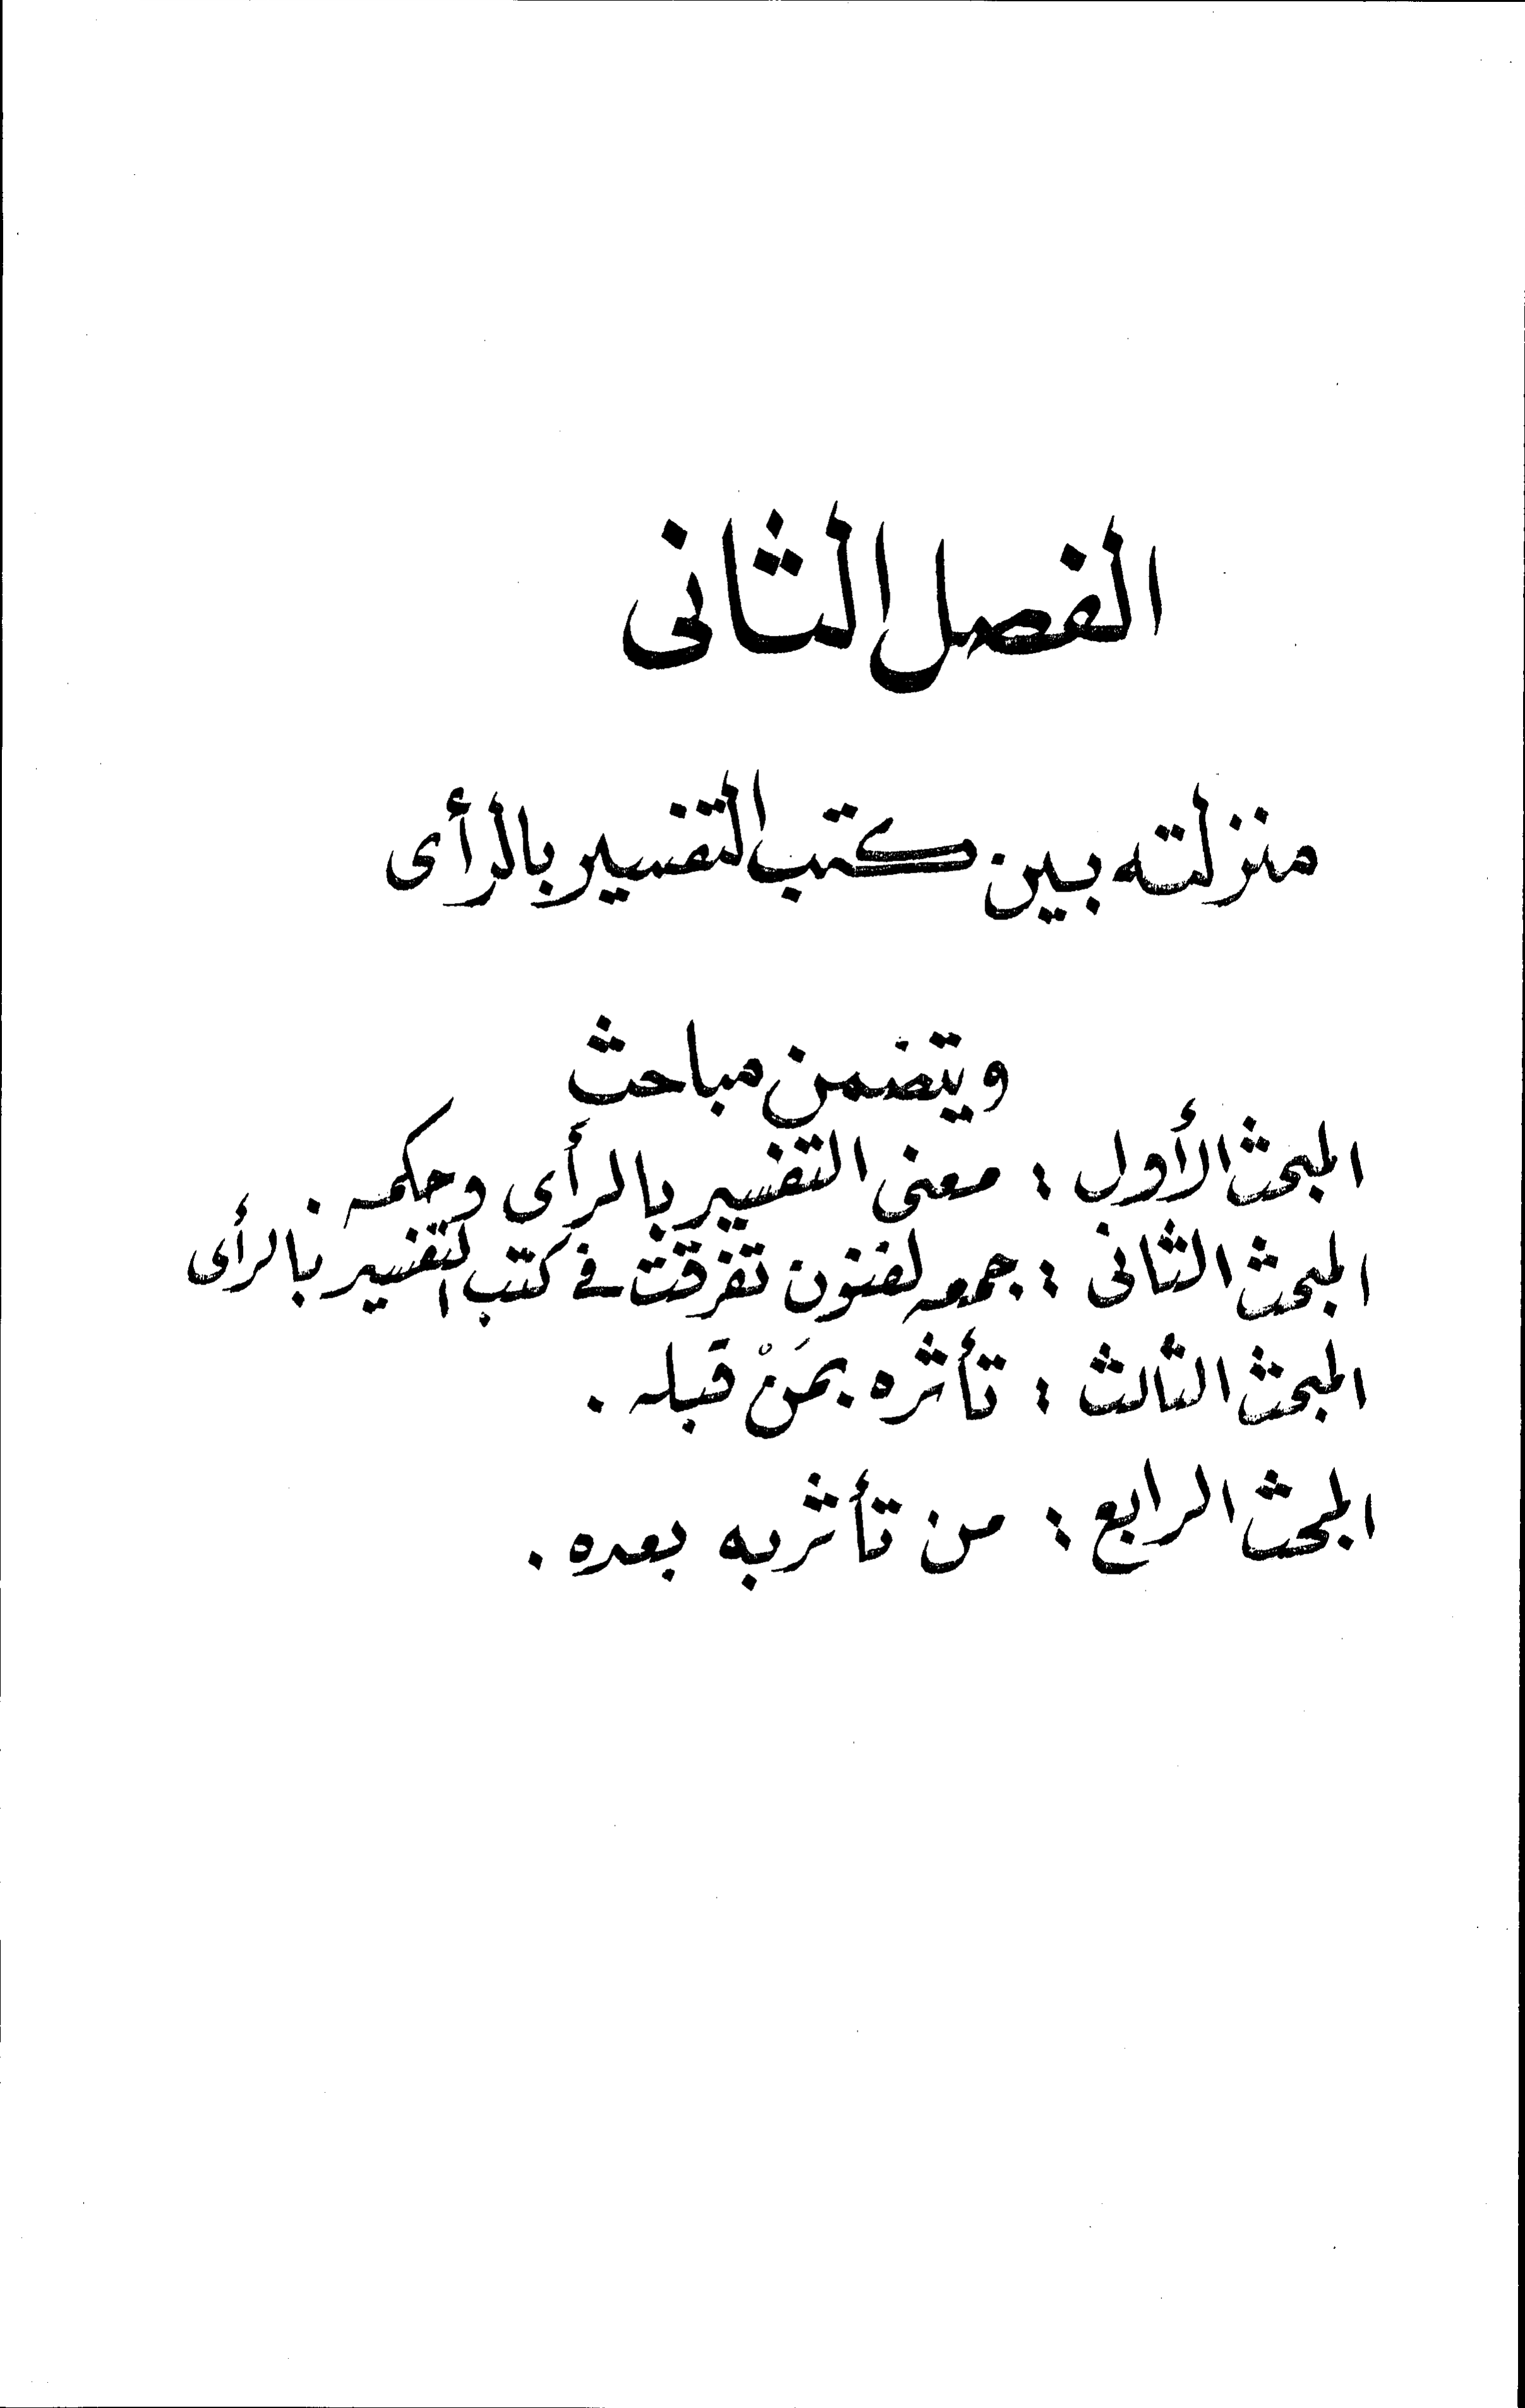 الفصل الثانى
منزلته بين كتب التفسير بالرأى
ويتضمن مباحث
المبحث الأول : معنى التفسير بالرأى وحكمه .
المبحث الثانى : جمعه لفنون تفرقت فى كتب التفسير بالرأى
المبحث الثالث : تأثره بمَنْ قبله .
المبحث الرابع : من تأثر به بعده .